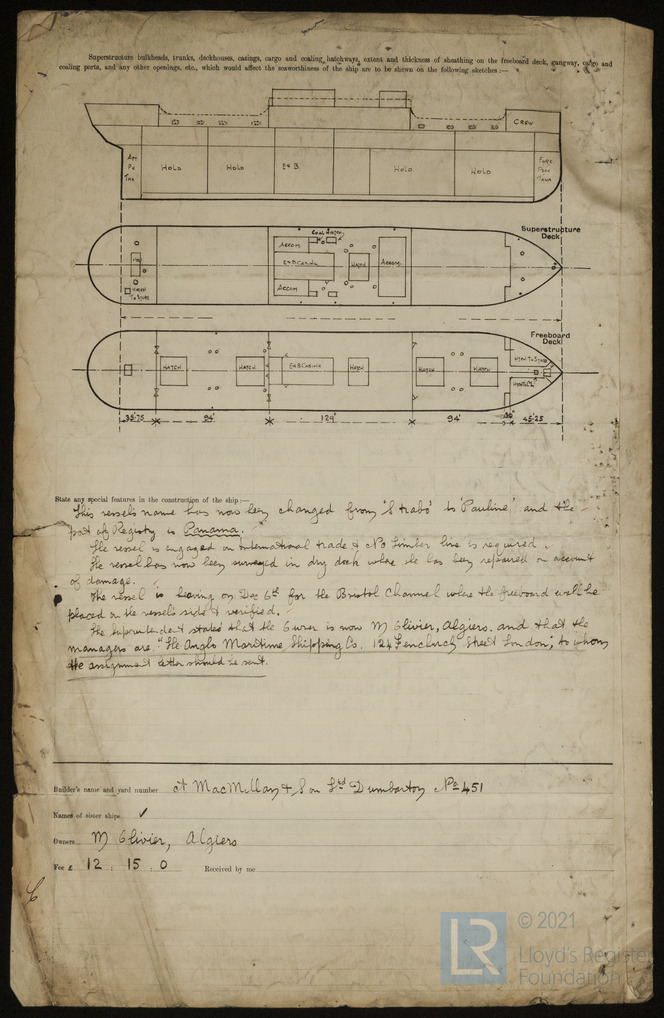 Superstructure bulkheads, trunks, deckhouses, casings, cargo and coaling hatchways, extent and thickness of sheathing on the freeboard deck, gangway, cargo and
coaling ports, and any other openings, etc., which would affect the seaworthiness of the ship are to be shewn on the following sketches:—
CREW
AFT
PK
TNK
HOLD
HOLD
E & B.
HOLD
HOLD
FORE
PEAK
TANK
Superstructure
Deck
COAL HATCH
ACCOM
HATCH
ACCOM
ACCOM
HATCH
TO STORE
Freeboard
Deck
HATCH
HATCH
E & B CASING
HATCH
HATCH
HATCH
HATCH TO STORE
35·75
94'
129'
94'
45·25
State any special features in the construction of the ship:—
This vessels name has now been changed from 'Strabo' to 'Pauline' and the
Port of Registry is Panama.
The vessel is engaged on International trade & No timber line is required.
The vessel has now been surveyed in dry dock where she has been repaired on account
of damage.
The vessel is leaving on Dec 6th for the Bristol Channel where the freeboard will be
placed on the vessels side & verified.
The Superintendent states that the Owner is now M Olivier, Algiers. and that the
managers are "The Anglo Maritime Shipping Co. 124 Fenchurch Street London; to whom
the assignment letter should be sent.
Builder's name and yard number A MacMillan & Son Ltd Dumbarton No 451
Names of sister ships ✓
Owners M Olivier, Algiers
Fee £ 12 : 15 : 0 Received by me
LR
© 2021
Lloyd's Register
Foundation